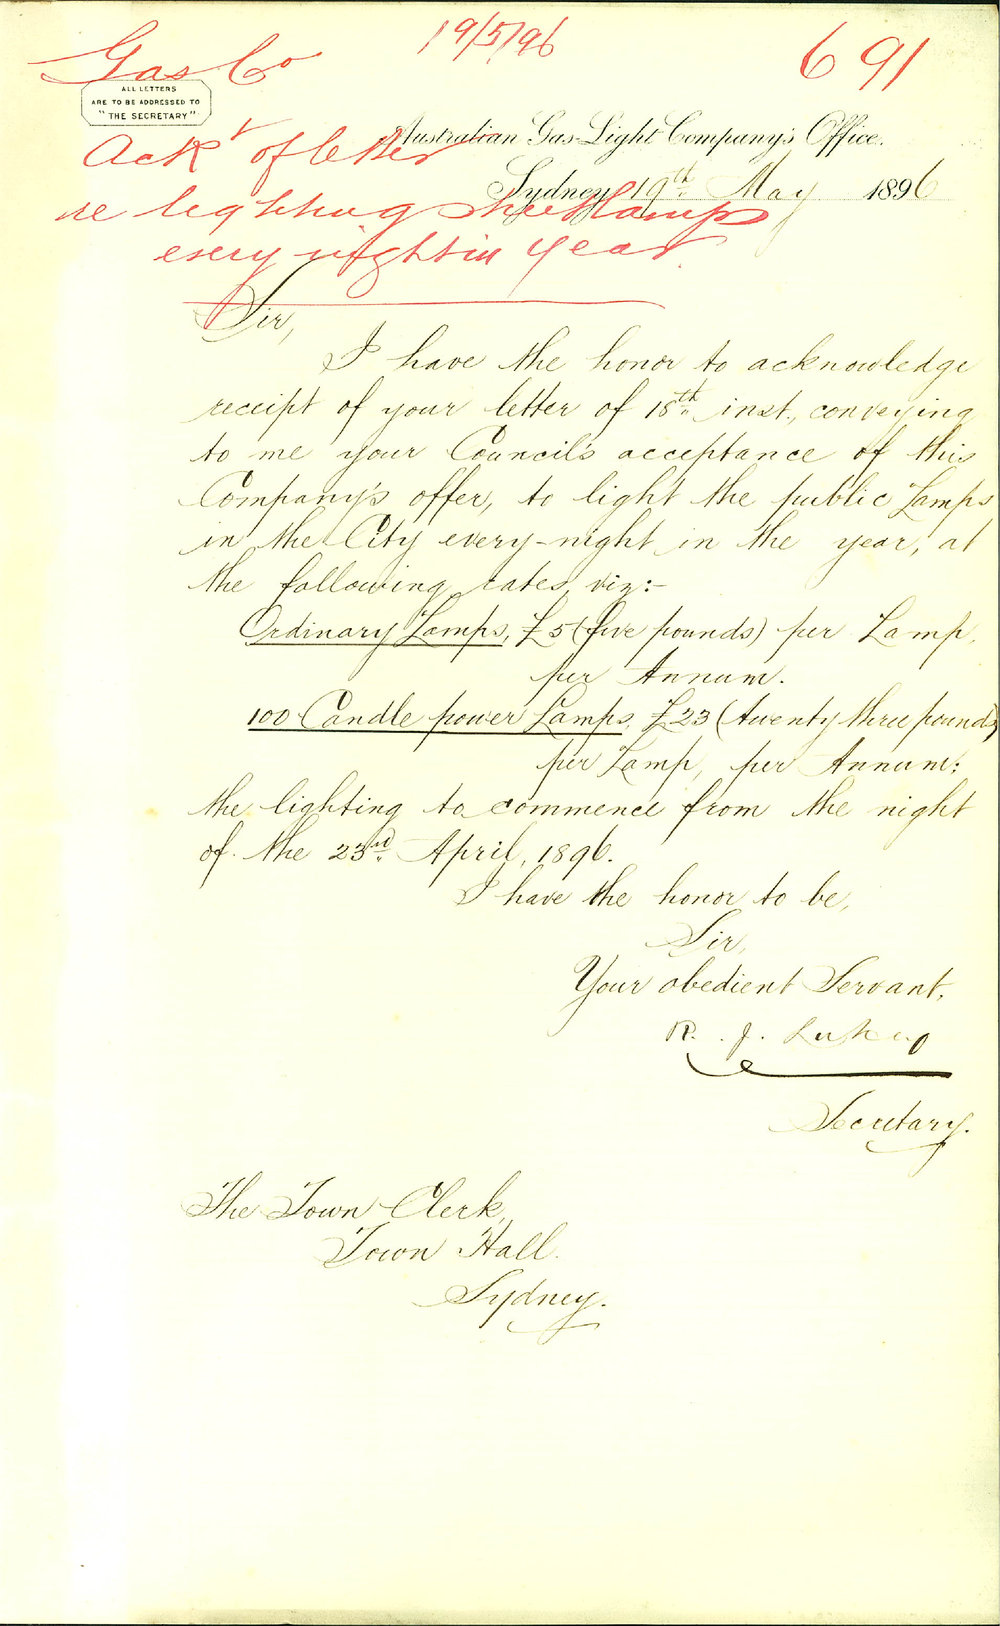 19/5/96
691
Gas Co
ALL LETTERS
ARE TO BE ADDRESSED TO
"THE SECRETARY"
Australian Gas-Light Company's Office.
Ackt of letter
Sydney 19th May 1896
re lighting street lamps
every night in year.
Sir,
I have the honor to acknowledge
receipt of your letter of 18th inst., conveying
to me your Council's acceptance of this
Company's offer, to light the public Lamps
in the City every-night in the year, at
the following rates, viz:-
Ordinary Lamps, £5 (five pounds) per Lamp,
per Annum.
100 Candle power Lamps, £23 (twenty three pounds)
per Lamp, per Annum:
the lighting to commence from the night
of the 23rd April, 1896.
I have the honor to be,
Sir,
Your obedient Servant,
R. J. Lukey
Secretary.
The Town Clerk,
Town Hall.
Sydney.